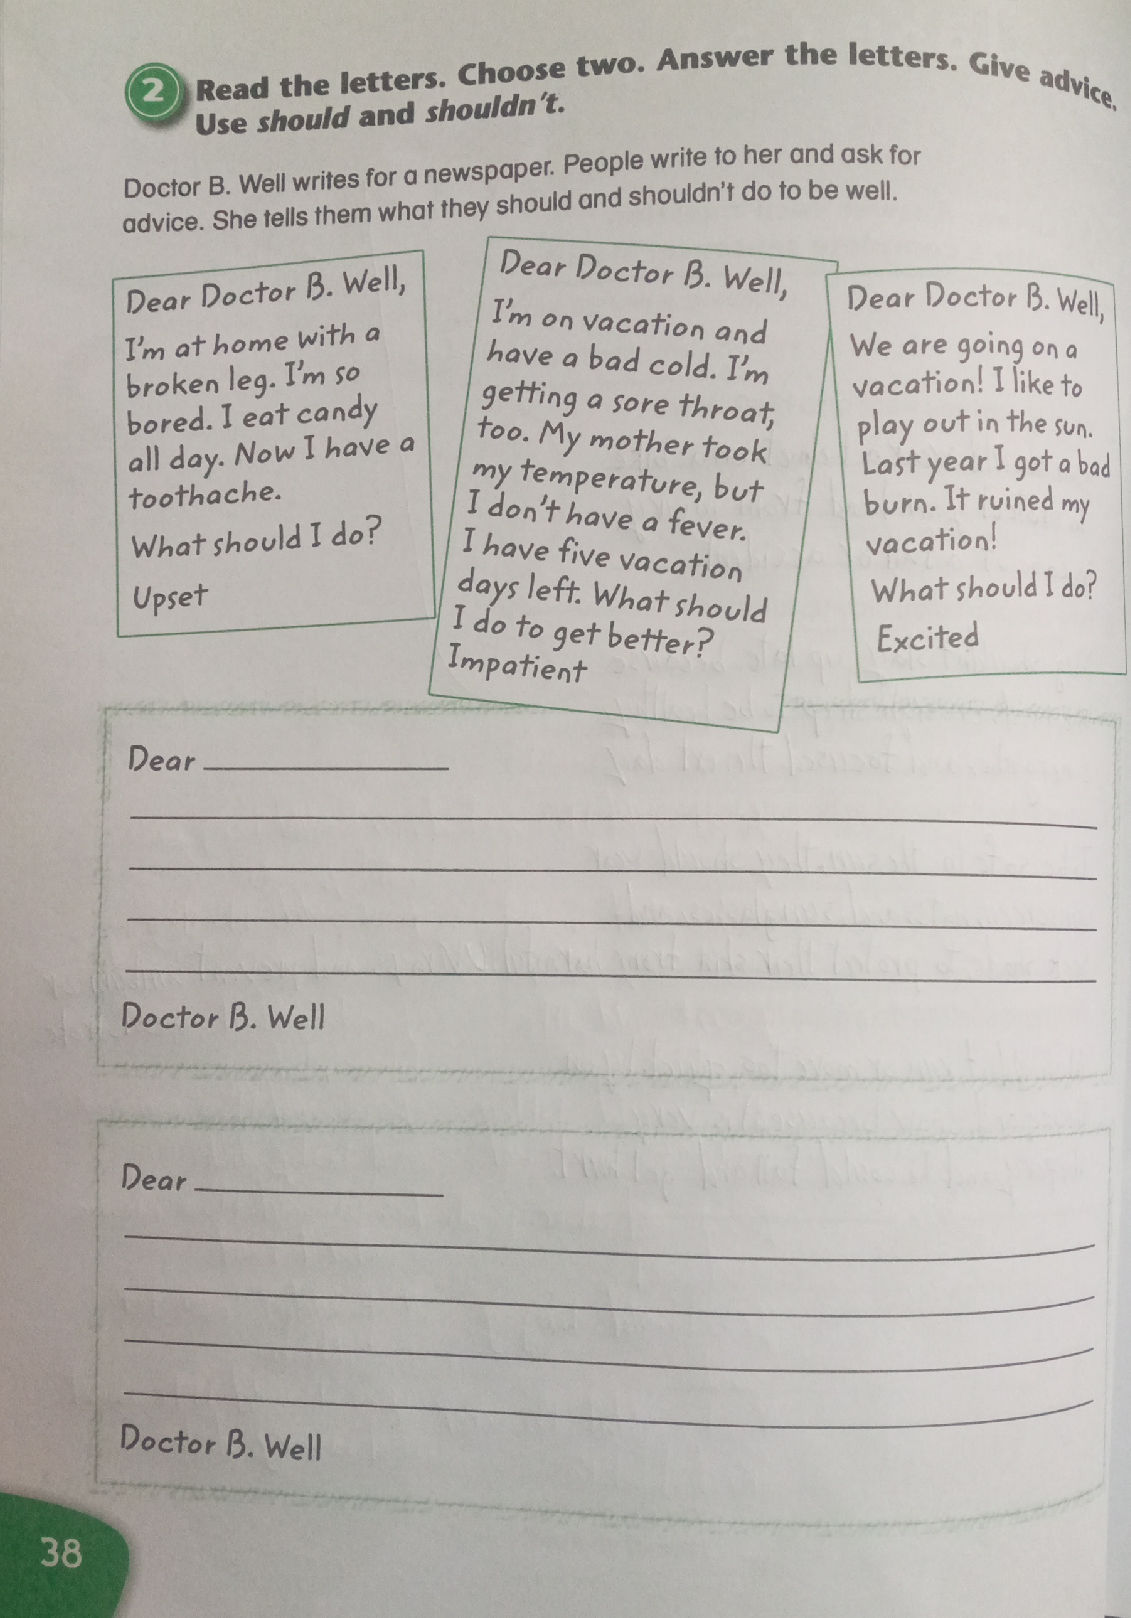 2 Read the letters. Choose two. Answer the letters. Give advice.
Use should and shouldn't.
Doctor B. Well writes for a newspaper. People write to her and ask for
advice. She tells them what they should and shouldn't do to be well.
Dear Doctor B. Well,
I'm at home with a
broken leg. I'm so
bored. I eat candy
all day. Now I have a
toothache.
What should I do?
Upset
Dear Doctor B. Well,
I'm on vacation and
have a bad cold. I'm
getting a sore throat,
too. My mother took
my temperature, but
I don't have a fever.
I have five vacation
days left. What should
I do to get better?
Impatient
Dear Doctor B. Well,
We are going on a
vacation! I like to
play out in the sun.
Last year I got a bad
burn. It ruined my
vacation!
What should I do?
Excited
Dear
Doctor B. Well
Dear
Doctor B. Well
38